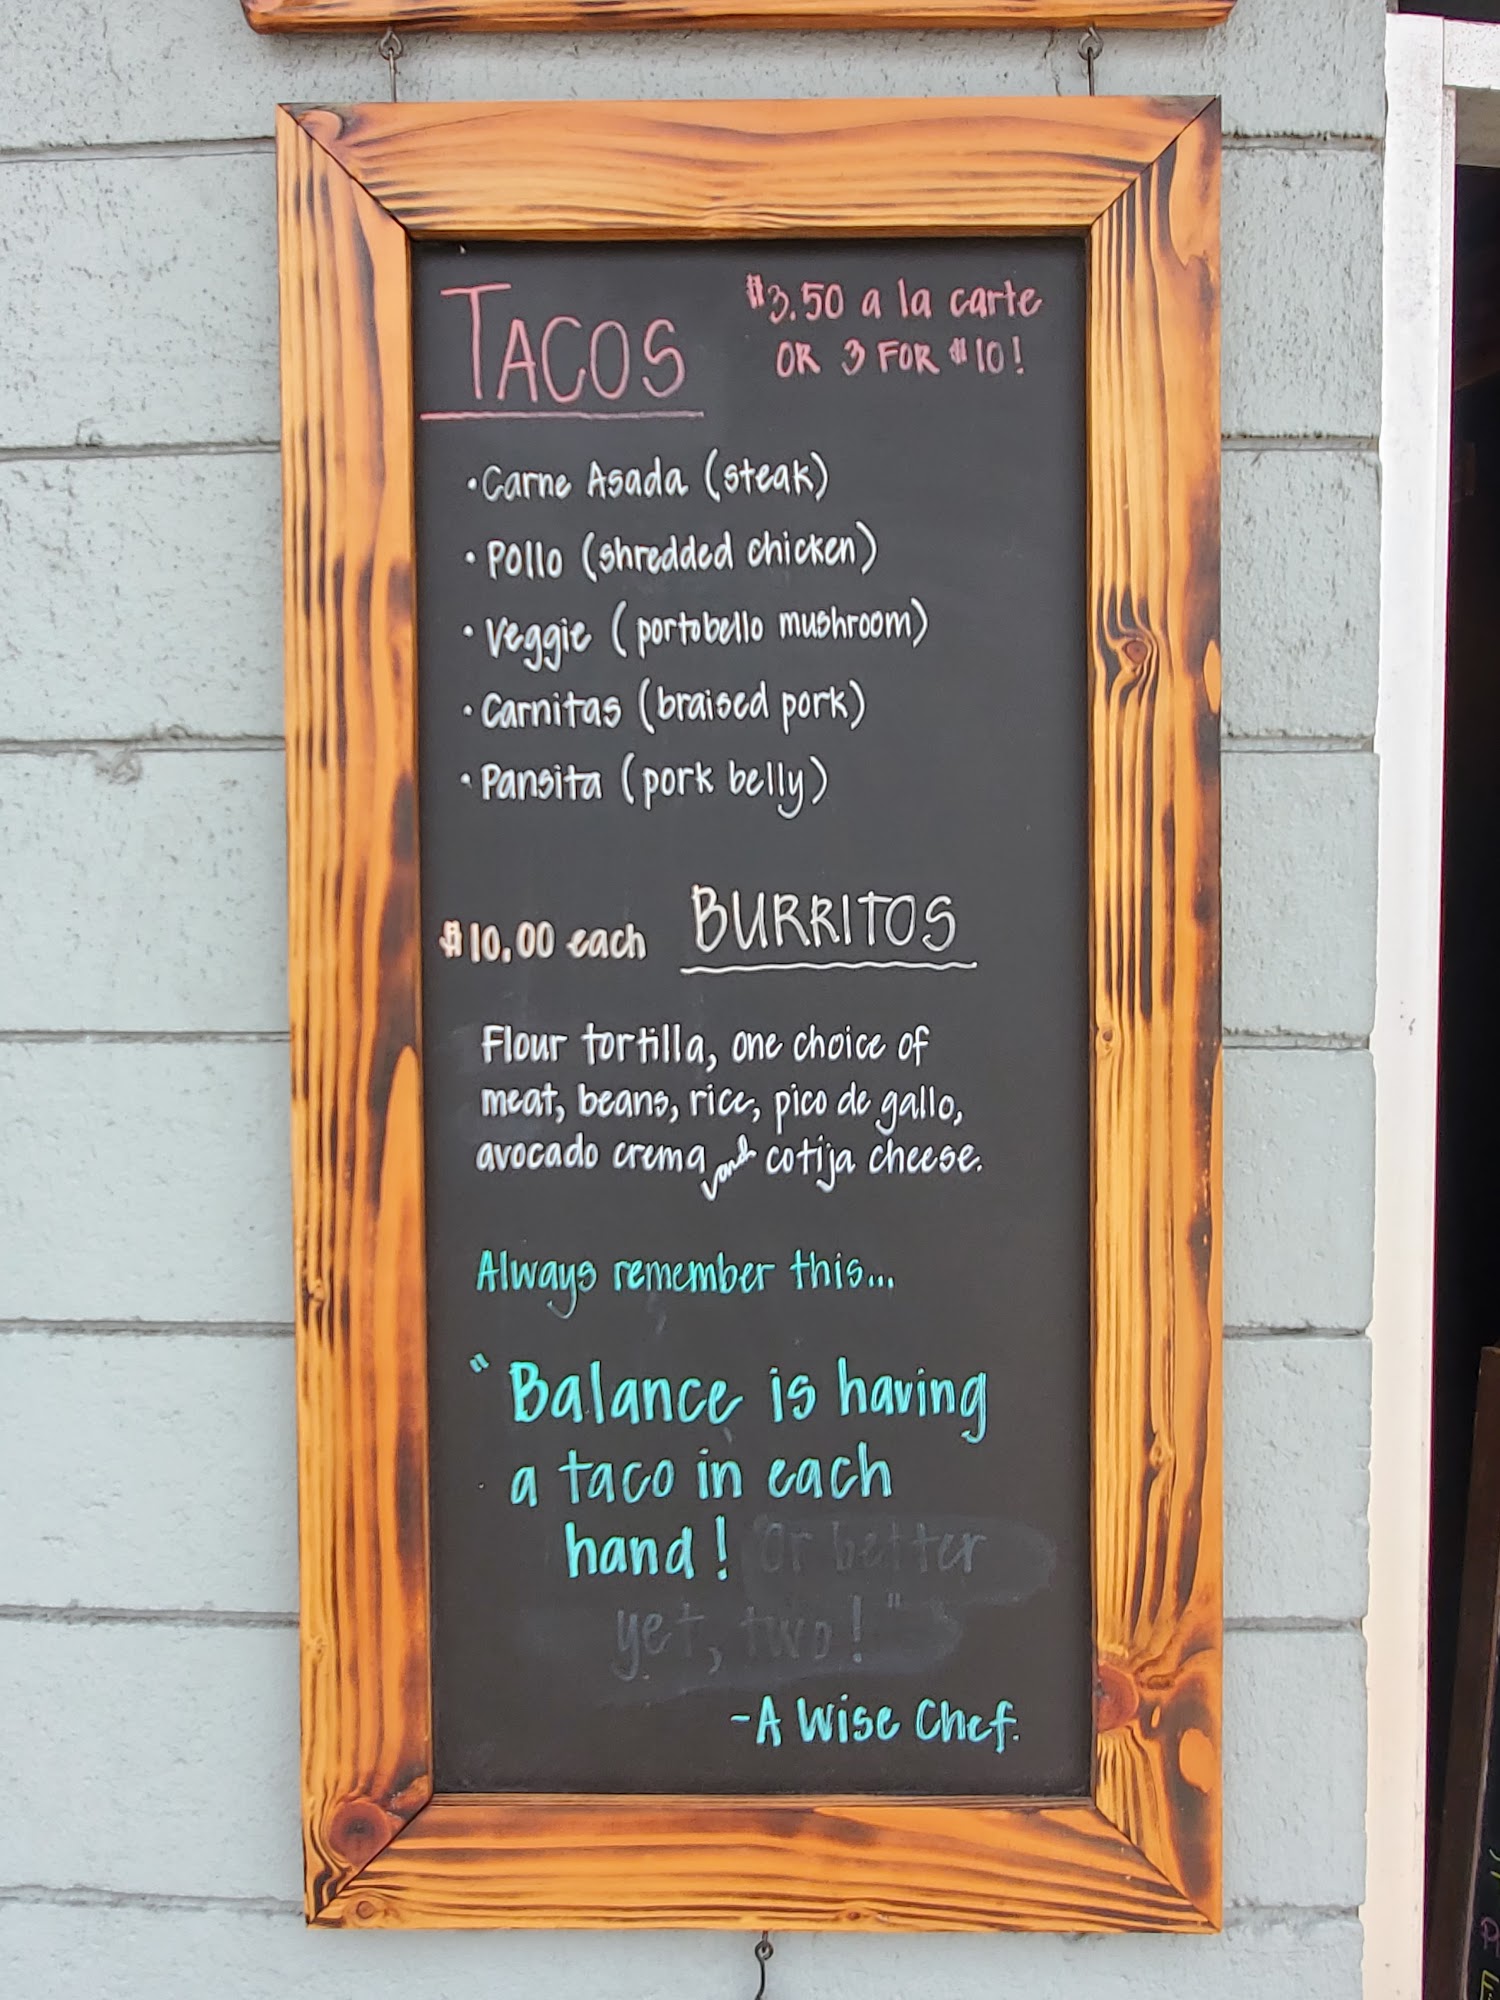 TACOS
$3.50 a la carte
OR 3 FOR $10!
• Carne Asada (steak)
• Pollo (shredded chicken)
• Veggie (portobello mushroom)
• Carnitas (braised pork)
• Pansita (pork belly)
$10.00 each BURRITOS
Flour tortilla, one choice of
meat, beans, rice, pico de gallo,
avocado crema and cotija cheese.
Always remember this...
"Balance is having
a taco in each
hand! Or better
yet, two!"
-A Wise Chef.